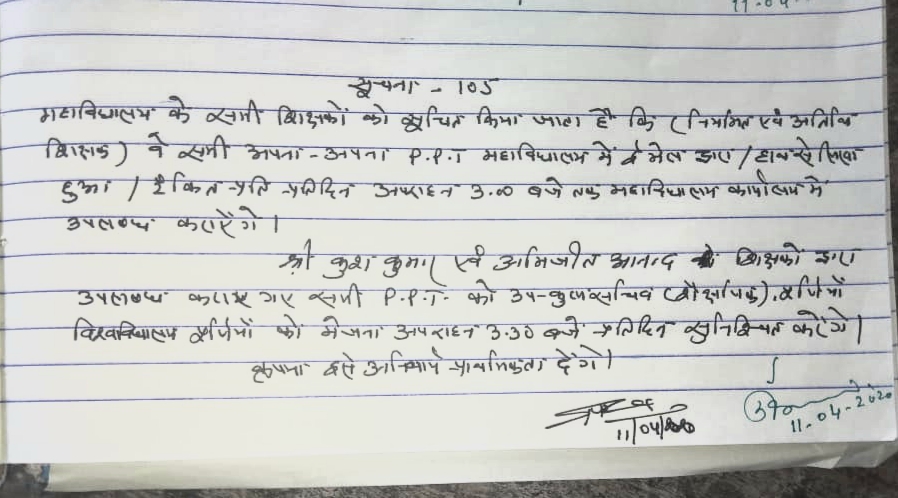 11-04
सूचना - 105
महाविद्यालय के सभी शिक्षकों को सूचित किया जाता है कि (नियमित एवं अतिथि
शिक्षक) वे सभी अपना-अपना P.P.T महाविद्यालय में ई मेल द्वारा / हाथ से लिखा
हुआ / टंकित प्रति प्रतिदिन अपराहन 3.00 बजे तक महाविद्यालय कार्यालय में
उपलब्ध कराऐंगे।
श्री कुश कुमार एवं अभिजीत आनन्द शिक्षकों द्वारा
उपलब्ध कराए गए सभी P.P.T. को उप-कुलसचिव (शैक्षणिक), पूर्णियाँ
विश्वविद्यालय पूर्णियाँ को भेजना अपराहन 3.30 बजे प्रतिदिन सुनिश्चित करेंगे।
कृपया इसे अनिवार्य प्राथमिकता देंगे।
11/04/2020
11-04-2020